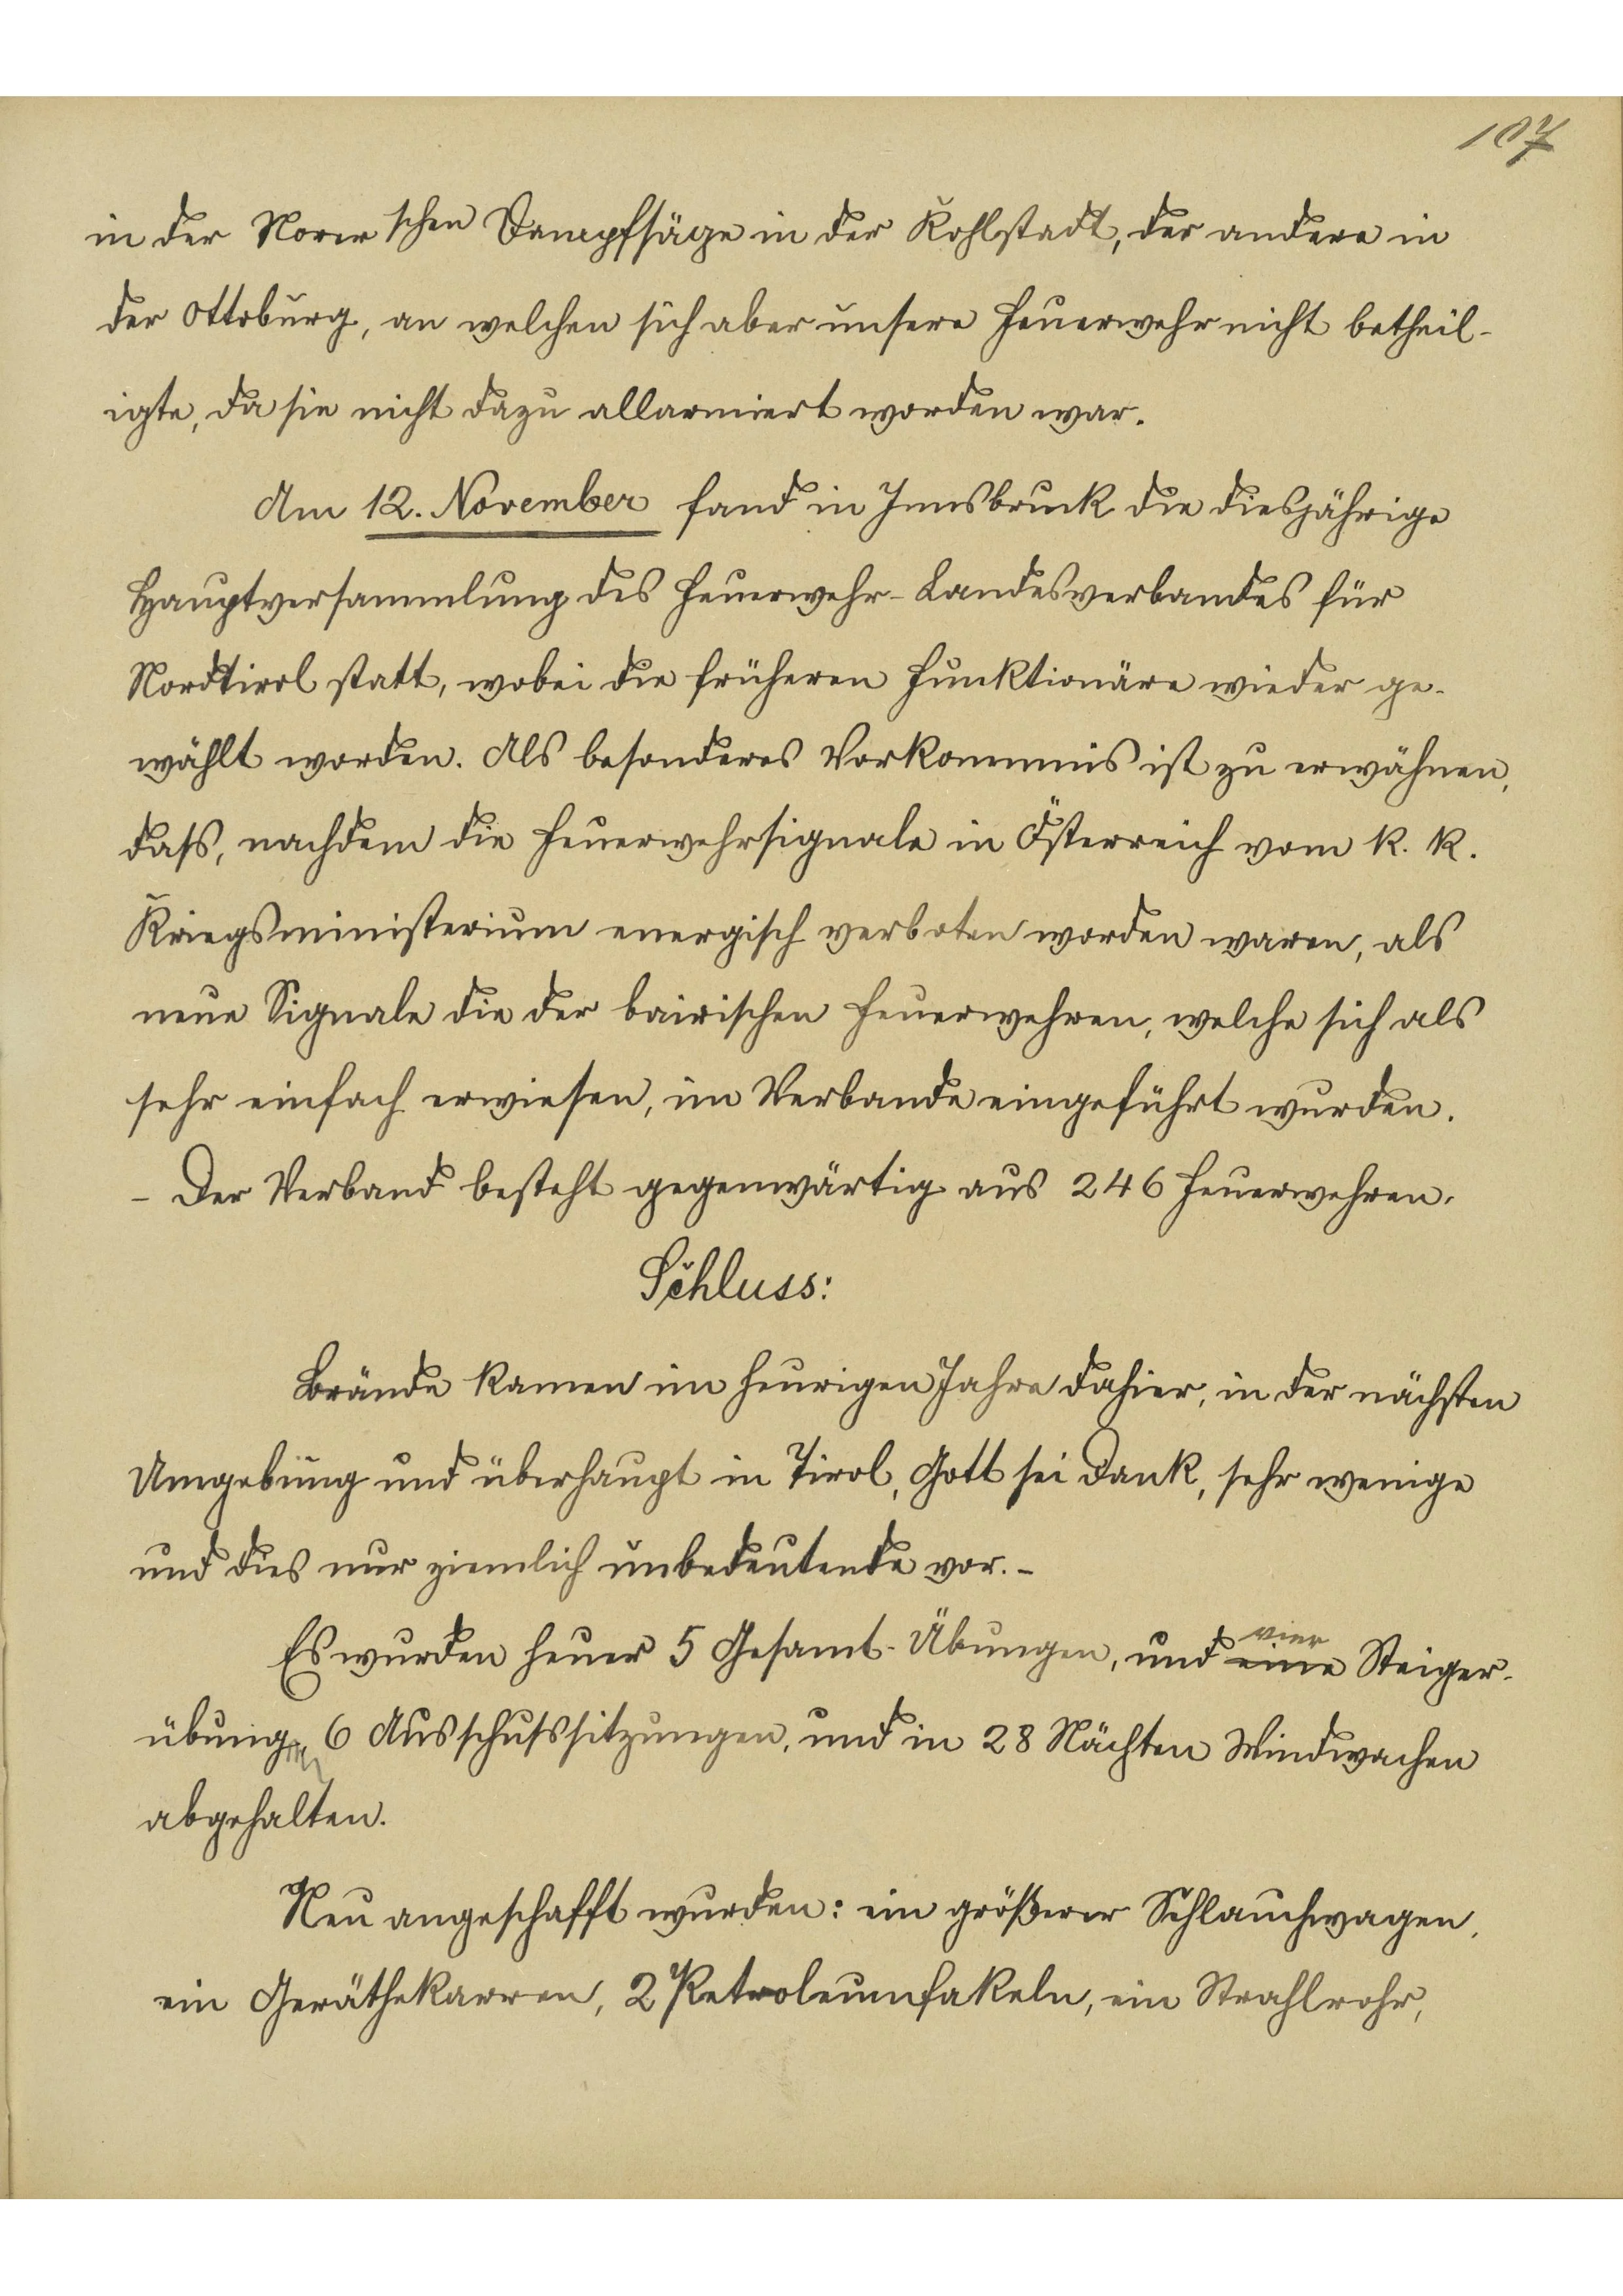 107
in der Norer'schen Dampfsäge in der Kohlstadt, der andere in
der Ottoburg, an welchen sich aber unsere Feuerwehr nicht betheil-
igte, da sie nicht dazu allarmiert worden war.
Am 12. November fand in Innsbruck die diesjährige
Hauptversammlung des Feuerwehr-Landesverbandes für
Nordtirol statt, wobei die früheren Funktionäre wieder ge-
wählt worden. Als besonderes Vorkommnis ist zu erwähnen,
dass, nachdem die Feuerwehrsignale in Österreich vom k. k.
Kriegsministerium energisch verboten worden waren, als
neue Signale die der bairischen Feuerwehren, welche sich als
sehr einfach erwiesen, im Verbande eingeführt wurden.
- Der Verband besteht gegenwärtig aus 246 Feuerwehren.
Schluss:
Brände kamen im heurigen Jahre dahier, in der nächsten
Umgebung und überhaupt in Tirol, Gott sei Dank, sehr wenige
und dies nur ziemlich unbedeutende vor.-
vier
Es wurden heuer 5 Gesamt-Übungen, und eine Steiger-
übungen, 6 Ausschusssitzungen, und in 28 Nächten Windwachen
abgehalten.
Neu angeschafft wurden: ein größerer Schlauchwagen,
ein Geräthekarren, 2 Petroleumfakeln, ein Strahlrohr,